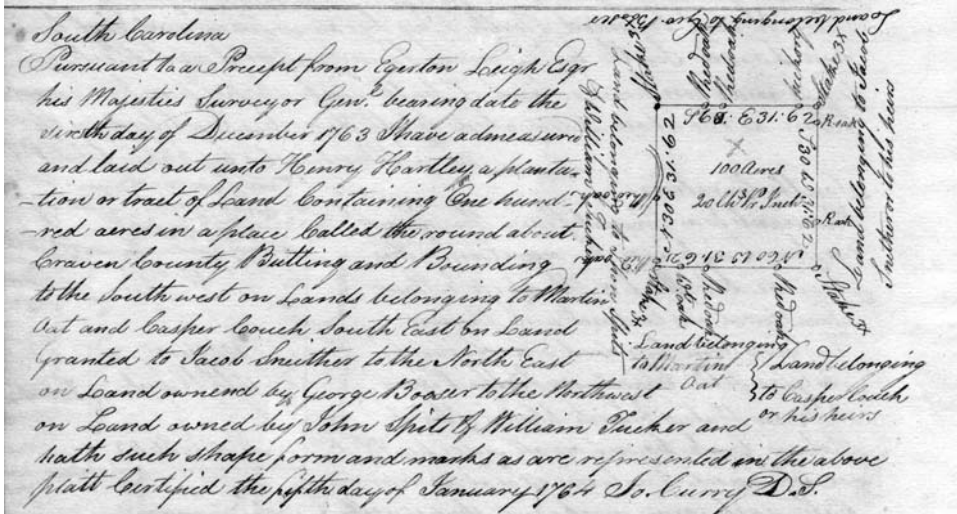 South Carolina
Pursuant to a Precept from Egerton Leigh Esqr
his Majesties Surveyor Genl. bearing date the
sixth day of December 1763 I have admeasured
and laid out unto Henry Hartley a planta-
-tion or tract of Land Containing One hund-
-red acres in a place Called the round about.
Craven County Butting and Bounding
to the South west on Lands belonging to Martin
Oat and Casper Couch South East on Land
Granted to Jacob Sneither to the North East
on Land ownend by George Booser to the Northwest
on Land owned by John Spits & William Tucker and
hath such shape form and marks as are represented in the above
platt Certified the fifth day of January 1764 Jo. Curry D. S.
Land belonging to Geo. Booser
Stake 3x
Redoak
Redoak
hickory
Stake 3x
S 60. E 31.62
R oak
100 Acres
20 Chs. Pr. Inch
N 30 E 31.62
S 30 W 31.62
R oak
N 60 W 31.62
Land belonging to John Spits
& William Tucker
Land belonging to Jacob
Sneither or his heirs
Stake 3x
Redoak
Redoak
Stake 3x
Land belonging
to Martin
Oat
Land belonging
to Casper Couch
or his heirs